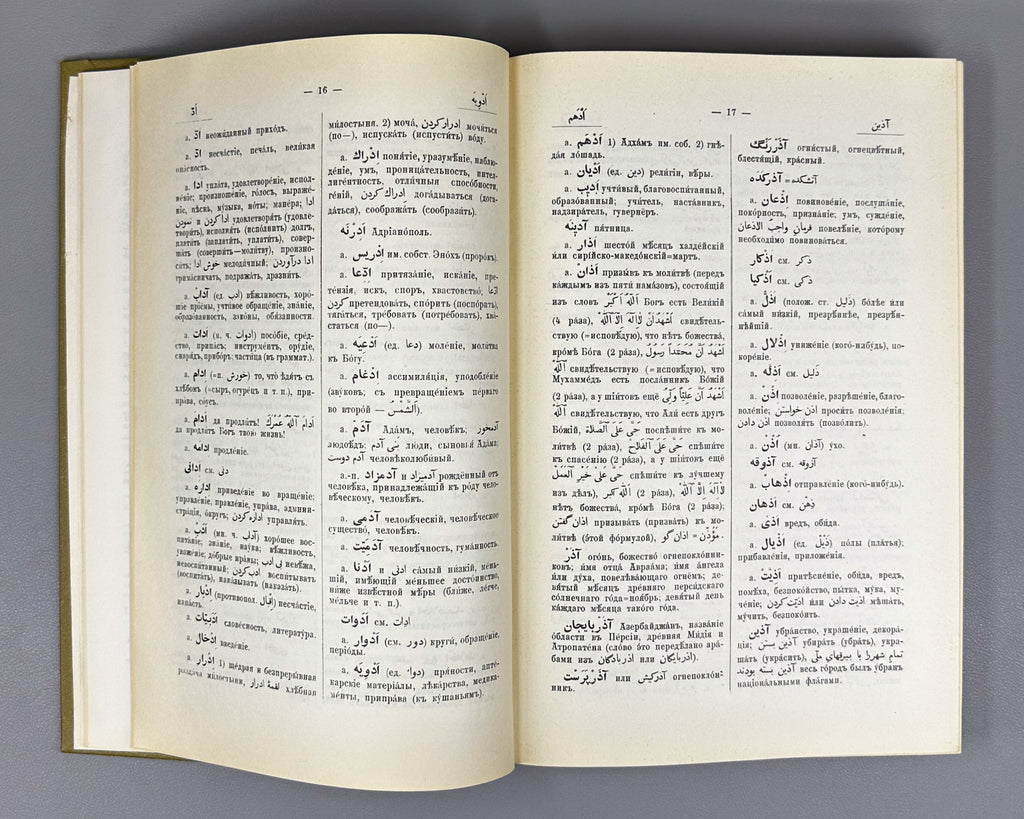 — 16 —
اَدْوِيَه
а. неожиданный приходъ.
а. несчастіе, печаль, великая
опасность.
а. ادا уплата, удовлетвореніе, испол-
неніе; произношеніе, голосъ, выраже-
ніе, пѣснь, музыка, ноты; манера; ادا
نمودن и ادا کردن удовлетворять (удовле-
творить), исполнять (исполнить) долгъ,
платить (заплатить, уплатить), совер-
шать (совершить—молитву), произно-
сить; خوش ادا мелодичный; ادا درآوردن
гримасничать, подражать, дразнить.
а. آداب (ед. ادب) вѣжливость, хоро-
шіе пріёмы, учтивое обращеніе, знаніе,
образованность, законы, обязанности.
а. ادات (м. ч. ادوات) пособіе, сред-
ство, припасъ; инструментъ, орудіе,
снарядъ, приборъ; частица (въ граммат.).
а. ادام (=п. خورش) то, что ѣдятъ съ
хлѣбомъ (=сыръ, огурецъ и т. п.), при-
права, соусъ.
а. ادام да продлитъ! اَدَامَ اللّٰهُ عُمْرَكَ
да продлитъ Богъ твою жизнь!
а. ادامه продленіе.
ادانی см. دنی
а. اداره приведеніе во вращеніе;
управленіе, правленіе, управа, админи-
страція, округъ; اداره کردن управлять.
а. اَدَب (мн. ч. آداب) хорошее вос-
питаніе; знаніе, наука; вѣжливость,
уваженіе; добрые нравы; بی ادب невѣжа,
невоспитанный; ادب کردن воспитывать
(воспитать), наказывать (наказать).
а. اِدْبار (противопол. اقبال) несчастіе,
напасть.
а. اَدَبِيّات словесность, литература.
а. اِدْخال введеніе.
а. اِدْرار 1) щедрая и безпрерывная
раздача милостыни, لقمهٔ ادرار хлѣбная
милостыня. 2) моча, ادرار کردن мочиться
(по—), испускать (испустить) воду.
а. اِدْراك понятіе, уразумѣніе, наблю-
деніе, умъ, проницательность, интел-
лигентность, отличныя способности,
геній, ادراك کردن догадываться (дога-
даться), соображать (сообразить).
اِدْرِنَه Адріанополь.
а. اِدْریس им. собст. Энохъ (пророкъ).
а. اِدّعا притязаніе, исканіе, пре-
тензія, искъ, споръ, хвастовство; ادّعا
کردن претендовать, спорить (поспорать),
тягаться, требовать (потребовать), хва-
статься (по—).
а. اَدْعِيَه (ед. دعا) моленіе, молитва
къ Богу.
а. اِدْغام ассимиляція, уподобленіе
(звуковъ, съ превращеніемъ перваго
во второй — اَلشَّمْس).
а. آدَم Адамъ, человѣкъ; آدمخور
людоѣдъ; بنی آدم люди, сыновья Адама;
آدم دوست человѣколюбивый.
а.-п. آدمیزاد и آدمزاد рождённый отъ
человѣка, принадлежащій къ роду чело-
вѣческому, человѣкъ.
а. آدَمی человѣческій, человѣчное
существо, человѣкъ.
а. آدَمِيَّت человѣчность, гуманность.
а. اَدْنا и ادنی самый низкій, мень-
шій, имѣющій меньшее достоинство,
ниже извѣстной мѣры (ближе, легче,
мельче и т. п.).
ادوات см. ادات
а. اَدْوار (см. دور) круги, обращеніе,
періоды.
а. اَدْوِيَه (ед. دوا) пряности, апте-
карскіе матеріалы, лѣкарства, медика-
менты, приправа (къ кушаньямъ).
اَدْهَم
— 17 —
آذین
а. اَدْهَم 1) Адхамъ им. соб. 2) гнѣ-
дая лошадь.
а. اَدْیان (ед. دین) религіи, вѣры.
а. اَدِیب учтивый, благовоспитанный,
образованный; учитель, наставникъ,
надзиратель, гувернёръ.
آدینه пятница.
а. آذار шестой мѣсяцъ халдейскій
или сирійско-македонскій=мартъ.
а. اَذان призывъ къ молитвѣ (передъ
каждымъ изъ пяти намазовъ), состоящій
изъ словъ اَللّٰهُ اَكْبَر Богъ есть Великій
(4 раза), اَشْهَدُ اَنْ لَا اِلٰهَ اِلَّا اللّٰه свидѣтель-
ствую (=исповѣдую), что нѣтъ божества,
кромѣ Бога (2 раза), اَشْهَدُ اَنَّ مُحَمَّداً رَسُولُ
اللّٰه свидѣтельствую (=исповѣдую), что
Мухаммедъ есть посланникъ Божій
(2 раза), а у шіитовъ ещё اَشْهَدُ اَنَّ عَلِيّاً وَلِيُّ
اللّٰه свидѣтельствую, что Али есть другъ
Божій, حَيَّ عَلَى الصَّلاة поспѣшите къ мо-
литвѣ (2 раза), حَيَّ عَلَى الْفَلَاح спѣшите
къ спасенію (2 раза), а у шіитовъ ещё
حَيَّ عَلَى خَيْرِ الْعَمَل спѣшите къ лучшему
изъ дѣлъ), اَللّٰه اکبر (2 раза), لَا اِلٰهَ اِلَّا اللّٰه
нѣтъ божества, кромѣ Бога (2 раза);
اذان گفتن призывать (призвать) къ мо-
литвѣ (этой формулой), اذان گو = مُؤَذّن.
آذَر огонь, божество огнепоклонни-
ковъ; имя отца Авраама; имя ангела
или духа, повелѣвающаго огнёмъ; де-
вятый мѣсяцъ древняго персидскаго
солнечнаго года=ноябрь; девятый день
каждаго мѣсяца такого года.
آذَربایجان Азербайджанъ, названіе
области въ Персіи, древняя Мидія и
Атропатена (слово это передѣлано ара-
бами изъ آذربادگان или آذربایگان).
آذَرپَرَست или آذرکیش огнепоклон-
никъ.
آذَررَنگ огнистый, огнецвѣтный,
блестящій, красный.
آذرکده=آتشکده
а. اِذْعان повиновеніе, послушаніе,
покорность, признаніе; умъ, сужденіе,
فرمان واجب الاذعان повелѣніе, которому
необходимо повиноваться.
اذکار см. ذکر
اذکیا см. ذکی
а. اَذَلّ (полож. ст. ذلیل) болѣе или
самый низкій, презрѣнне, презрѣн-
нѣйшій.
а. اِذْلال униженіе (кого-нибудь), по-
кореніе.
а. اَذِلّه см. ذلیل
а. اِذْن позволеніе, разрѣшеніе, благо-
воленіе; اذن خواستن просить позволенія;
اذن دادن позволять (позволить).
а. اُذُن (мн. آذان) ухо.
آذوقه см. آزوقه
а. اِذْهاب отправленіе (кого-нибудь).
اذهان см. ذِهْن
а. اَذَی вредъ, обида.
а. اَذْیال (ед. ذَیْل) полы (платья);
прибавленія, приложенія.
а. اَذِیَّت притѣсненіе, обида, вредъ,
помѣха, безпокойство, пытка, мука, му-
ченіе; اذیت کردن или اذیت دادن мѣшать,
мучить, безпокоить.
آذین убранство, украшеніе, декора-
ція; آذین بستن убирать (убрать), укра-
шать (украсить), تمام شهر را با بیرقهای ملّی
آذین بسته بودند весь городъ былъ убранъ
національными флагами.